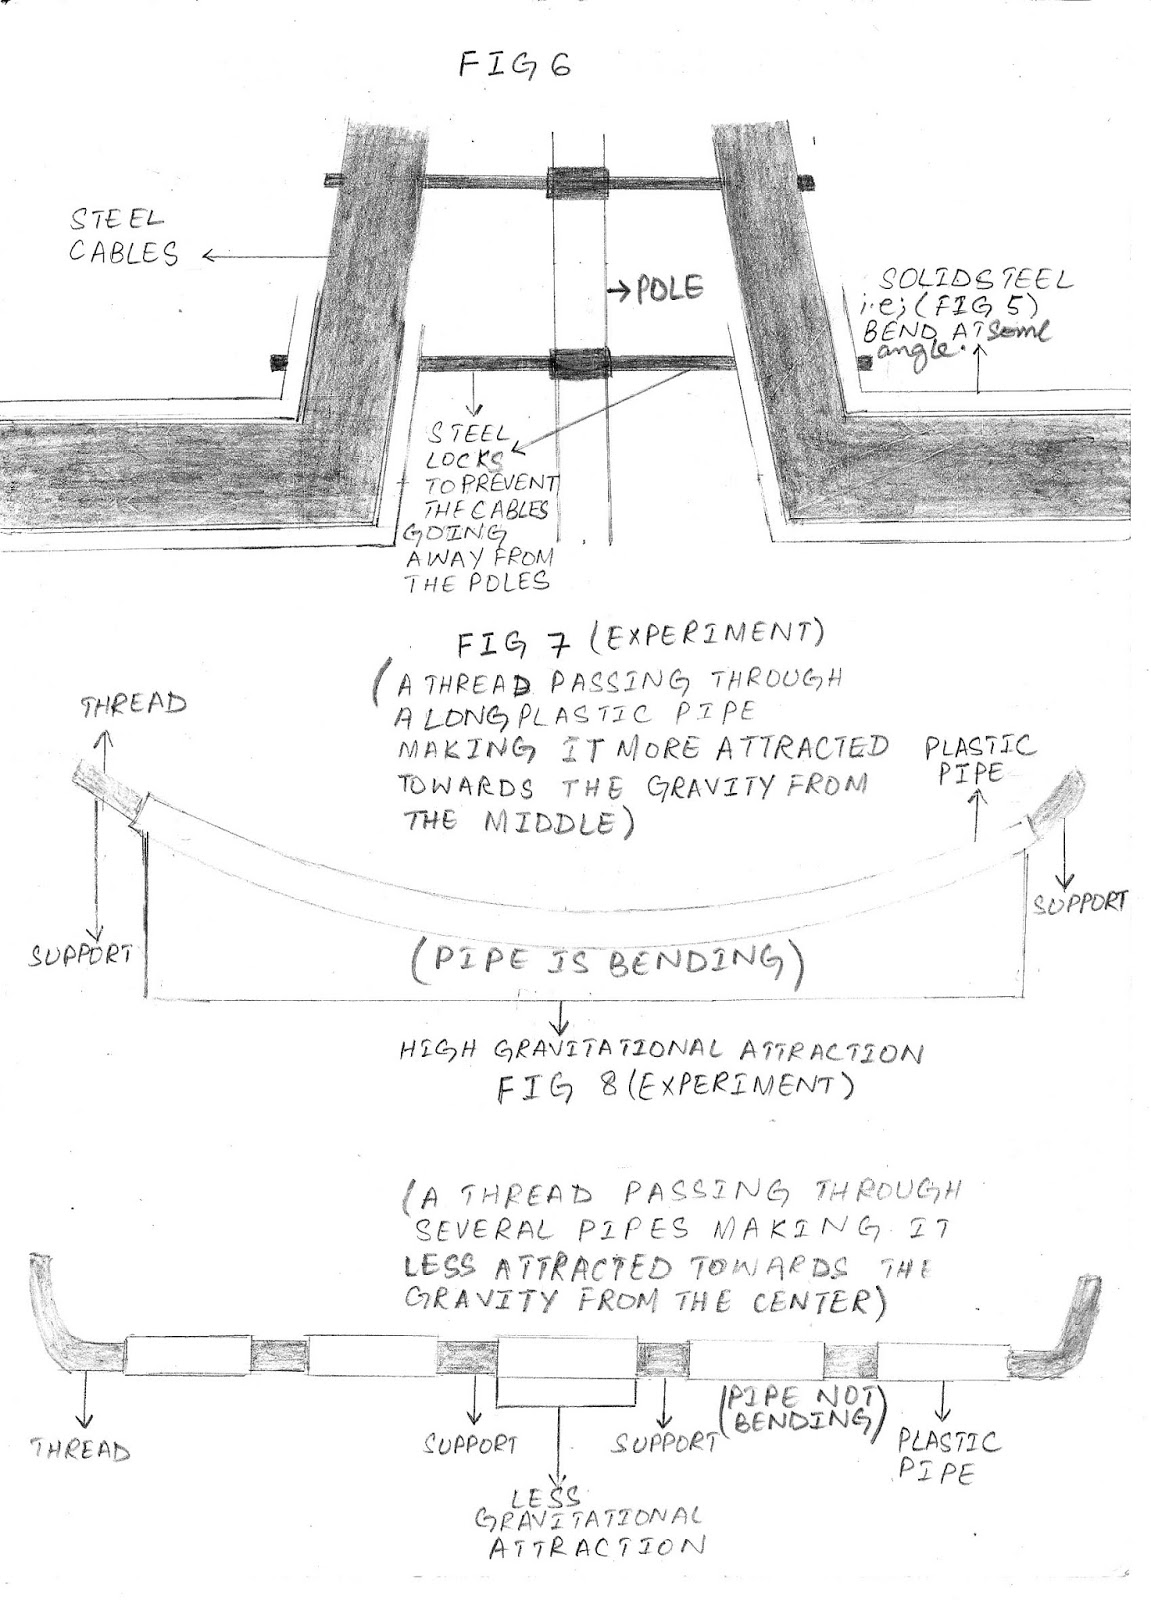 FIG 6
STEEL
CABLES
POLE
SOLID STEEL
i.e; (FIG 5)
BEND AT some
angle.
STEEL
LOCKS
TO PREVENT
THE CABLES
GOING
AWAY FROM
THE POLES
FIG 7 (EXPERIMENT)
(A THREAD PASSING THROUGH
A LONG PLASTIC PIPE
MAKING IT MORE ATTRACTED
TOWARDS THE GRAVITY FROM
THE MIDDLE)
THREAD
PLASTIC
PIPE
SUPPORT
SUPPORT
(PIPE IS BENDING)
HIGH GRAVITATIONAL ATTRACTION
FIG 8 (EXPERIMENT)
(A THREAD PASSING THROUGH
SEVERAL PIPES MAKING IT
LESS ATTRACTED TOWARDS THE
GRAVITY FROM THE CENTER)
THREAD
SUPPORT
SUPPORT
(PIPE NOT
BENDING)
PLASTIC
PIPE
LESS
GRAVITATIONAL
ATTRACTION